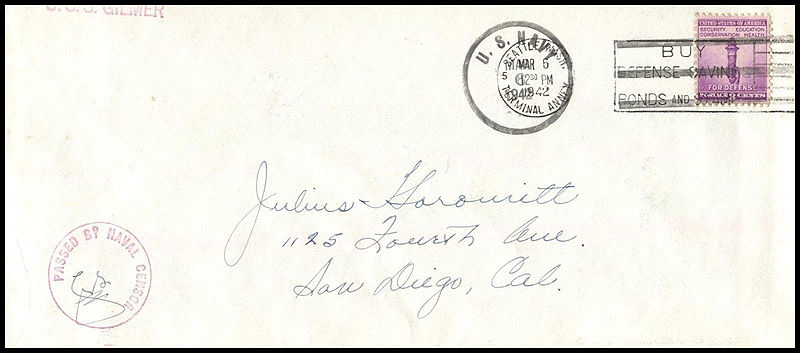 U.S.S. GILMER
U. S. NAVY
MAR 5
1942
SEATTLE, WASH.
MAR 5
12 30 PM
1942
TERMINAL ANNEX
BUY
DEFENSE SAVINGS
BONDS AND STAMPS
UNITED STATES OF AMERICA
SECURITY EDUCATION
CONSERVATION HEALTH
FOR DEFENSE
CENTS
Julius Horowitt
1125 Fourth Ave.
San Diego, Cal.
PASSED BY NAVAL CENSOR